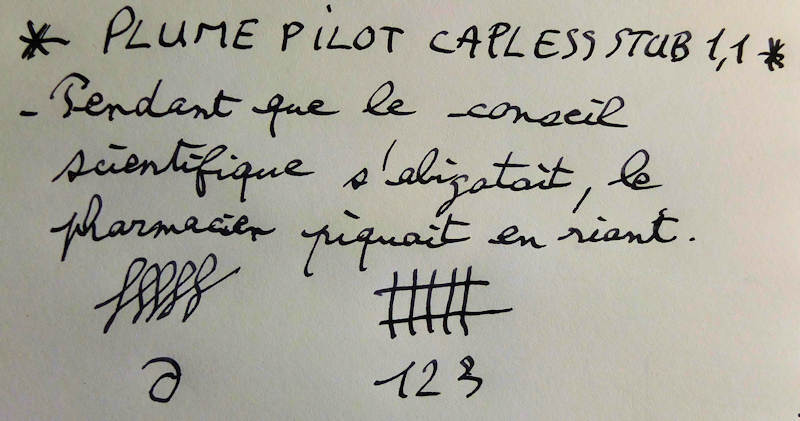 * PLUME PILOT CAPLESS STUB 1,1 *
- Pendant que le conseil
scientifique s'alizatait, le
pharmacien piquait en riant.
∂
123